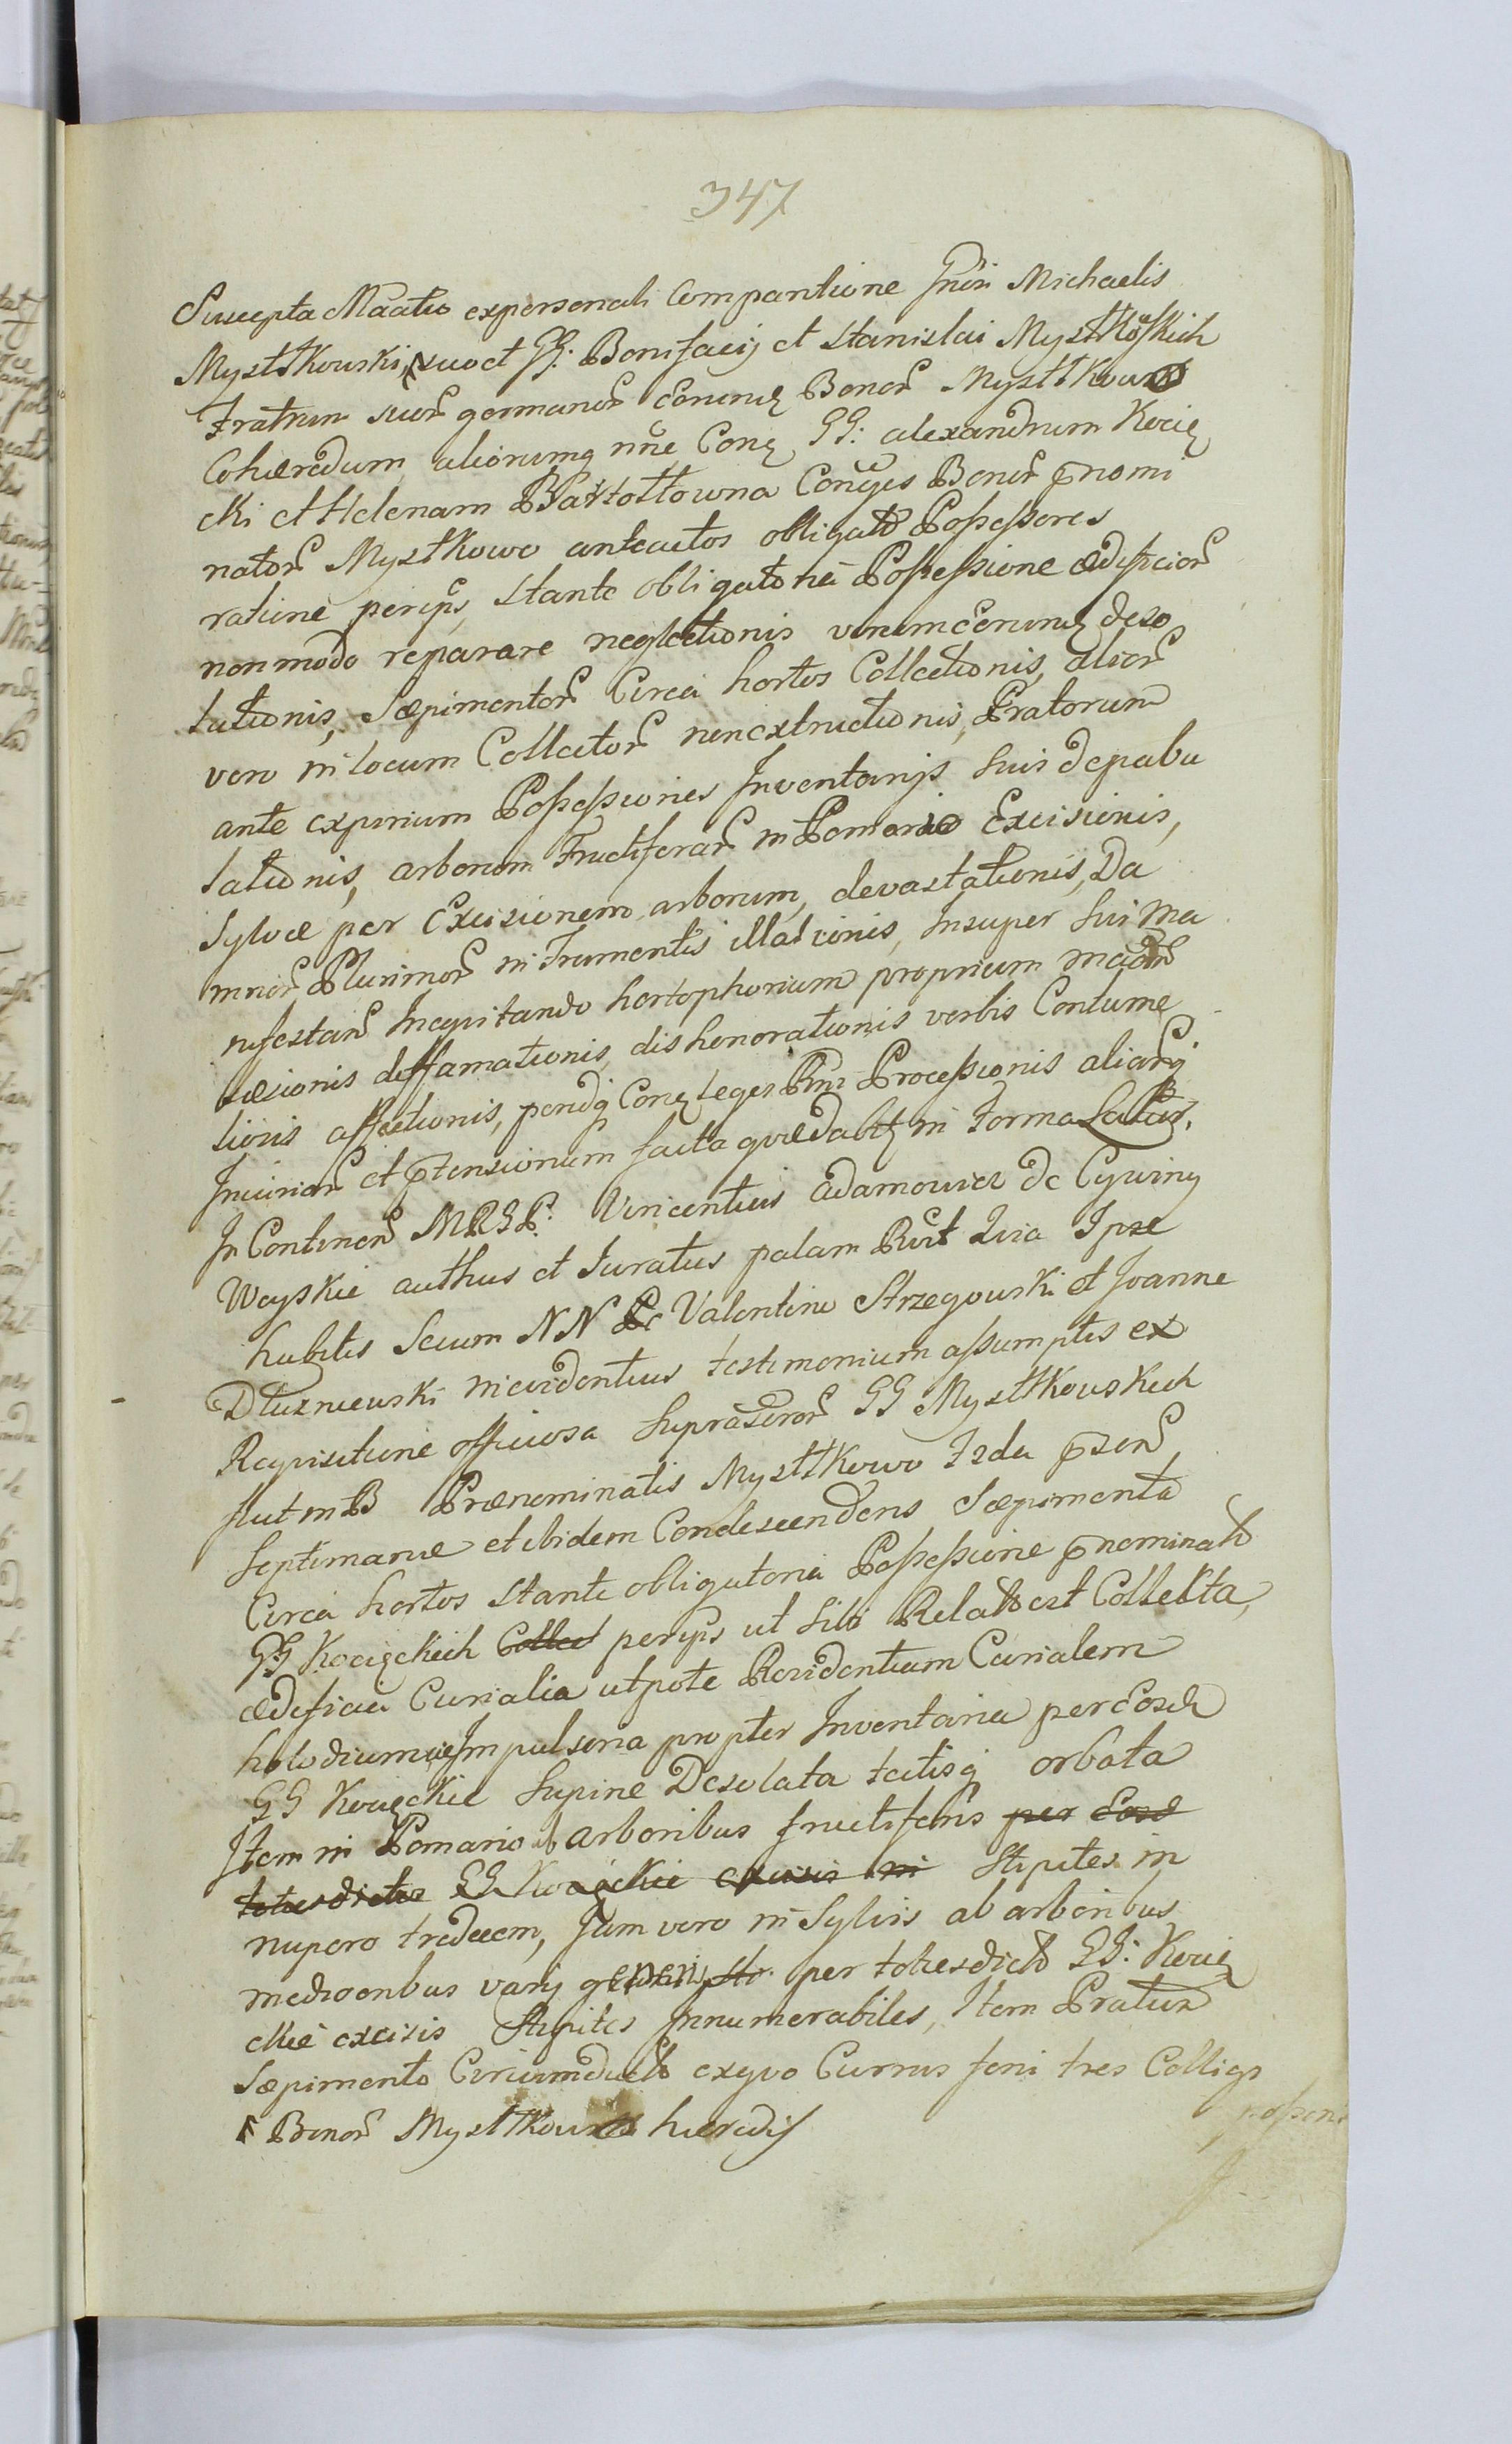 347
Suscepta Māātio expersonali Compantione Gnōsi Michaelis
Mysttkowski, suo et GG: Bonifacij et Stanislai Mysttkoskich
Fratrum suor germanor Eorund Bonor Mysttkowo
Cohæredum aliorumq nñe Conq GG: alexandrum Kocię
cki et Helenam Bartołtowna Conjges Bonor pnomi
nator Mystkowo anteactos obligato Possessores
ratione per ips, stante obligatoria Possessione ædificior
non modo reparare neglectionis verum eorund deso
lationis, Sæpimentor Circa hortos Collectionis, alior
vero in locum Collector non extructionis, Pratorum
ante expirium Possessiones Inventarijs suis depabu
lationis, arborum Fructiferar in Pomario Excisionis,
Sylvæ per Excisionem arborum, devastationis, Da
mnior Plurimor in Frumentis illationis, Insuper sui Ma
nifestan Inequitando hortophorium proprium
læsionis deffamationis, dishonorationis verbis Contume
liosis affectionis, Conq Leges Processionis aliarq
Iniuriar et ptensionum facta quædabt in Forma Latius.
In Continen MRGP. Vincentius Adamowicz de Cywiny
Woyskie authus et Juratus palam Rvit Quia Ipse
habitis Secum NN Pe Valentino Strzegowski et Joanne
Dłuzniewski in evidentius testimonium assumptis ex
Reqvisitione officiosa Supra GG Mysttkowskich
fuit in B Prænominatis Mysttkowo Frda pSen
Septimanæ et ibidem Condescendens Sæpimenta
Circa hortos Stante obligatoria Possessione pnominato
GG Kocięckich Collect per ips ut sibi Relato est Collecta,
ædificia Curialia utpote Residentiam Curialem
holodium Impulsoria propter Inventaria per Eosd
GG Kocięckie Supine Desolata tectisq orbata
Item in Pomario ab arboribus fructiferis per Eosd
totiesdictos GG Kocięckie excisis in Stipites in
nupero tredecem, Jam vero in Sylvis ab arboribus
mediocribus varij generis per totiesdicto GG: Kocię
ckie excisis Stipites Innumerabiles, Item Pratum
Sæpimento Circumducto exqvo Currus feni tres Colligi
Bonor Mysttkowo hæredis
possent